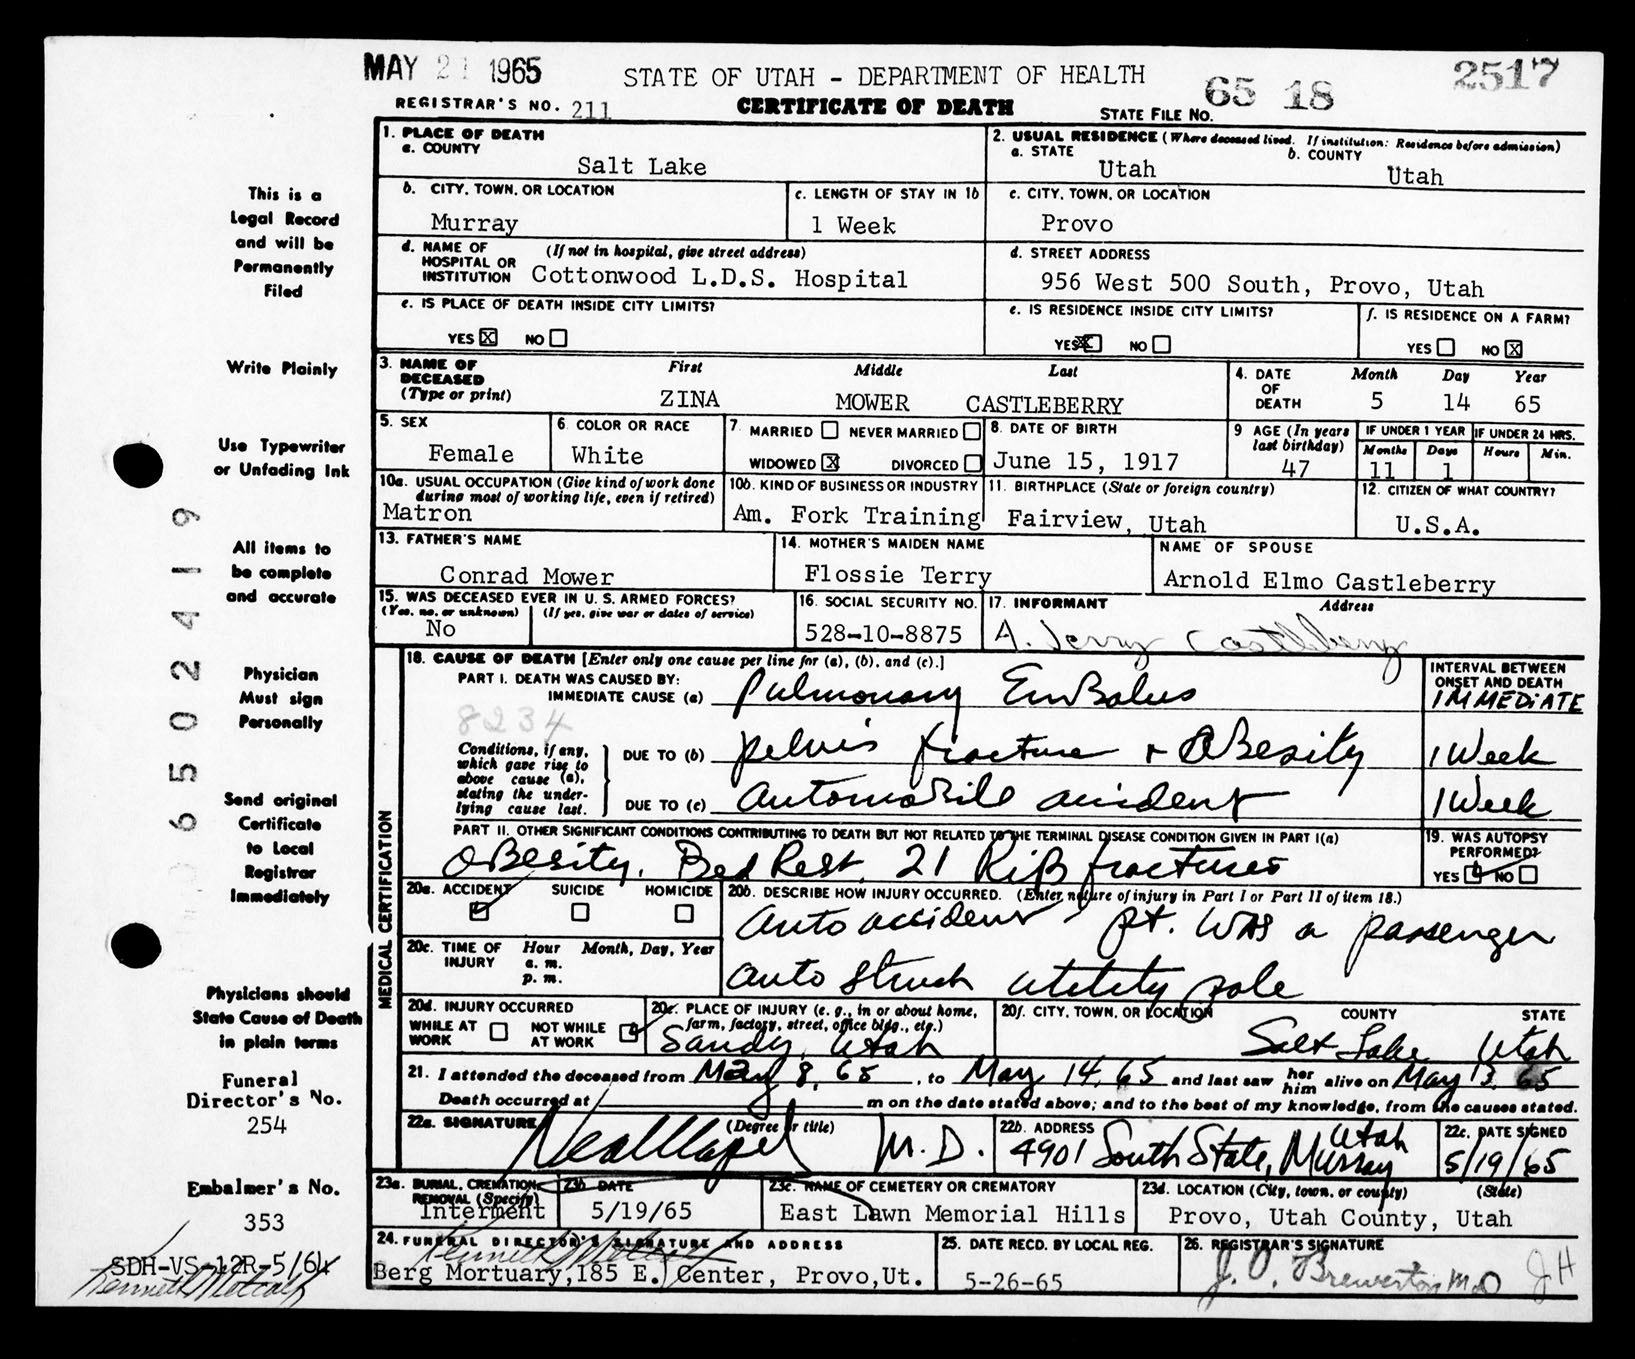 MAY 21 1965
STATE OF UTAH - DEPARTMENT OF HEALTH
65 18
2517
REGISTRAR'S NO. 211
CERTIFICATE OF DEATH
STATE FILE NO.
This is a
Legal Record
and will be
Permanently
Filed
Write Plainly
Use Typewriter
or Unfading Ink
All items to
be complete
and accurate
Physician
Must sign
Personally
Send original
Certificate
to Local
Registrar
Immediately
Physicians should
State Cause of Death
in plain terms
Funeral
Director's No.
254
Embalmer's No.
353
SDH-VS-12R-5/64
Kenneth Metcalf
6502419
1. PLACE OF DEATH
a. COUNTY
Salt Lake
2. USUAL RESIDENCE (Where deceased lived. If institution: Residence before admission)
a. STATE
Utah
b. COUNTY
Utah
b. CITY, TOWN, OR LOCATION
Murray
c. LENGTH OF STAY IN 1b
1 Week
c. CITY, TOWN, OR LOCATION
Provo
d. NAME OF HOSPITAL OR INSTITUTION (If not in hospital, give street address)
Cottonwood L.D.S. Hospital
d. STREET ADDRESS
956 West 500 South, Provo, Utah
e. IS PLACE OF DEATH INSIDE CITY LIMITS?
YES X NO
e. IS RESIDENCE INSIDE CITY LIMITS?
YES X NO
f. IS RESIDENCE ON A FARM?
YES NO X
3. NAME OF DECEASED (Type or print)
First Middle Last
ZINA MOWER CASTLEBERRY
4. DATE OF DEATH
Month Day Year
5 14 65
5. SEX
Female
6. COLOR OR RACE
White
7. MARRIED NEVER MARRIED
WIDOWED X DIVORCED
8. DATE OF BIRTH
June 15, 1917
9 AGE (In years last birthday)
47
IF UNDER 1 YEAR
Months Days
11 1
IF UNDER 24 HRS.
Hours Min.
10a. USUAL OCCUPATION (Give kind of work done during most of working life, even if retired)
Matron
10b. KIND OF BUSINESS OR INDUSTRY
Am. Fork Training
11. BIRTHPLACE (State or foreign country)
Fairview, Utah
12. CITIZEN OF WHAT COUNTRY?
U.S.A.
13. FATHER'S NAME
Conrad Mower
14. MOTHER'S MAIDEN NAME
Flossie Terry
NAME OF SPOUSE
Arnold Elmo Castleberry
15. WAS DECEASED EVER IN U. S. ARMED FORCES?
(Yes, no, or unknown) (If yes, give war or dates of service)
No
16. SOCIAL SECURITY NO.
528-10-8875
17. INFORMANT Address
A. Jerry Castleberry
MEDICAL CERTIFICATION
18. CAUSE OF DEATH [Enter only one cause per line for (a), (b), and (c).]
PART I. DEATH WAS CAUSED BY:
IMMEDIATE CAUSE (a) Pulmonary Embolus
8234
Conditions, if any, which gave rise to above cause (a), stating the underlying cause last.
DUE TO (b) pelvis fracture + Obesity
DUE TO (c) automobile accident
INTERVAL BETWEEN ONSET AND DEATH
IMMEDIATE
1 Week
1 Week
PART II. OTHER SIGNIFICANT CONDITIONS CONTRIBUTING TO DEATH BUT NOT RELATED TO THE TERMINAL DISEASE CONDITION GIVEN IN PART I(a)
Obesity, Bed Rest, 21 Rib fractures
19. WAS AUTOPSY PERFORMED?
YES NO
20a. ACCIDENT SUICIDE HOMICIDE
20b. DESCRIBE HOW INJURY OCCURRED. (Enter nature of injury in Part I or Part II of item 18.)
auto accident, pt. was a passenger
auto struck utility pole
20c. TIME OF INJURY
Hour Month, Day, Year
a. m.
p. m.
20d. INJURY OCCURRED
WHILE AT WORK NOT WHILE AT WORK
20e. PLACE OF INJURY (e. g., in or about home, farm, factory, street, office bldg., etc.)
Sandy, Utah
20f. CITY, TOWN, OR LOCATION COUNTY STATE
Salt Lake Utah
21. I attended the deceased from May 8, 65, to May 14, 65 and last saw her him alive on May 13, 65
Death occurred at m on the date stated above; and to the best of my knowledge, from the causes stated.
22a. SIGNATURE (Degree or title)
M.D.
22b. ADDRESS
4901 South State, Murray Utah
22c. DATE SIGNED
5/19/65
23a. BURIAL, CREMATION, REMOVAL (Specify)
Interment
23b DATE
5/19/65
23c. NAME OF CEMETERY OR CREMATORY
East Lawn Memorial Hills
23d. LOCATION (City, town, or county) (State)
Provo, Utah County, Utah
24. FUNERAL DIRECTOR'S SIGNATURE AND ADDRESS
Kenneth Metcalf
Berg Mortuary, 185 E. Center, Provo, Ut.
25. DATE RECD. BY LOCAL REG.
5-26-65
26. REGISTRAR'S SIGNATURE
J. O. Brewerton MD JH